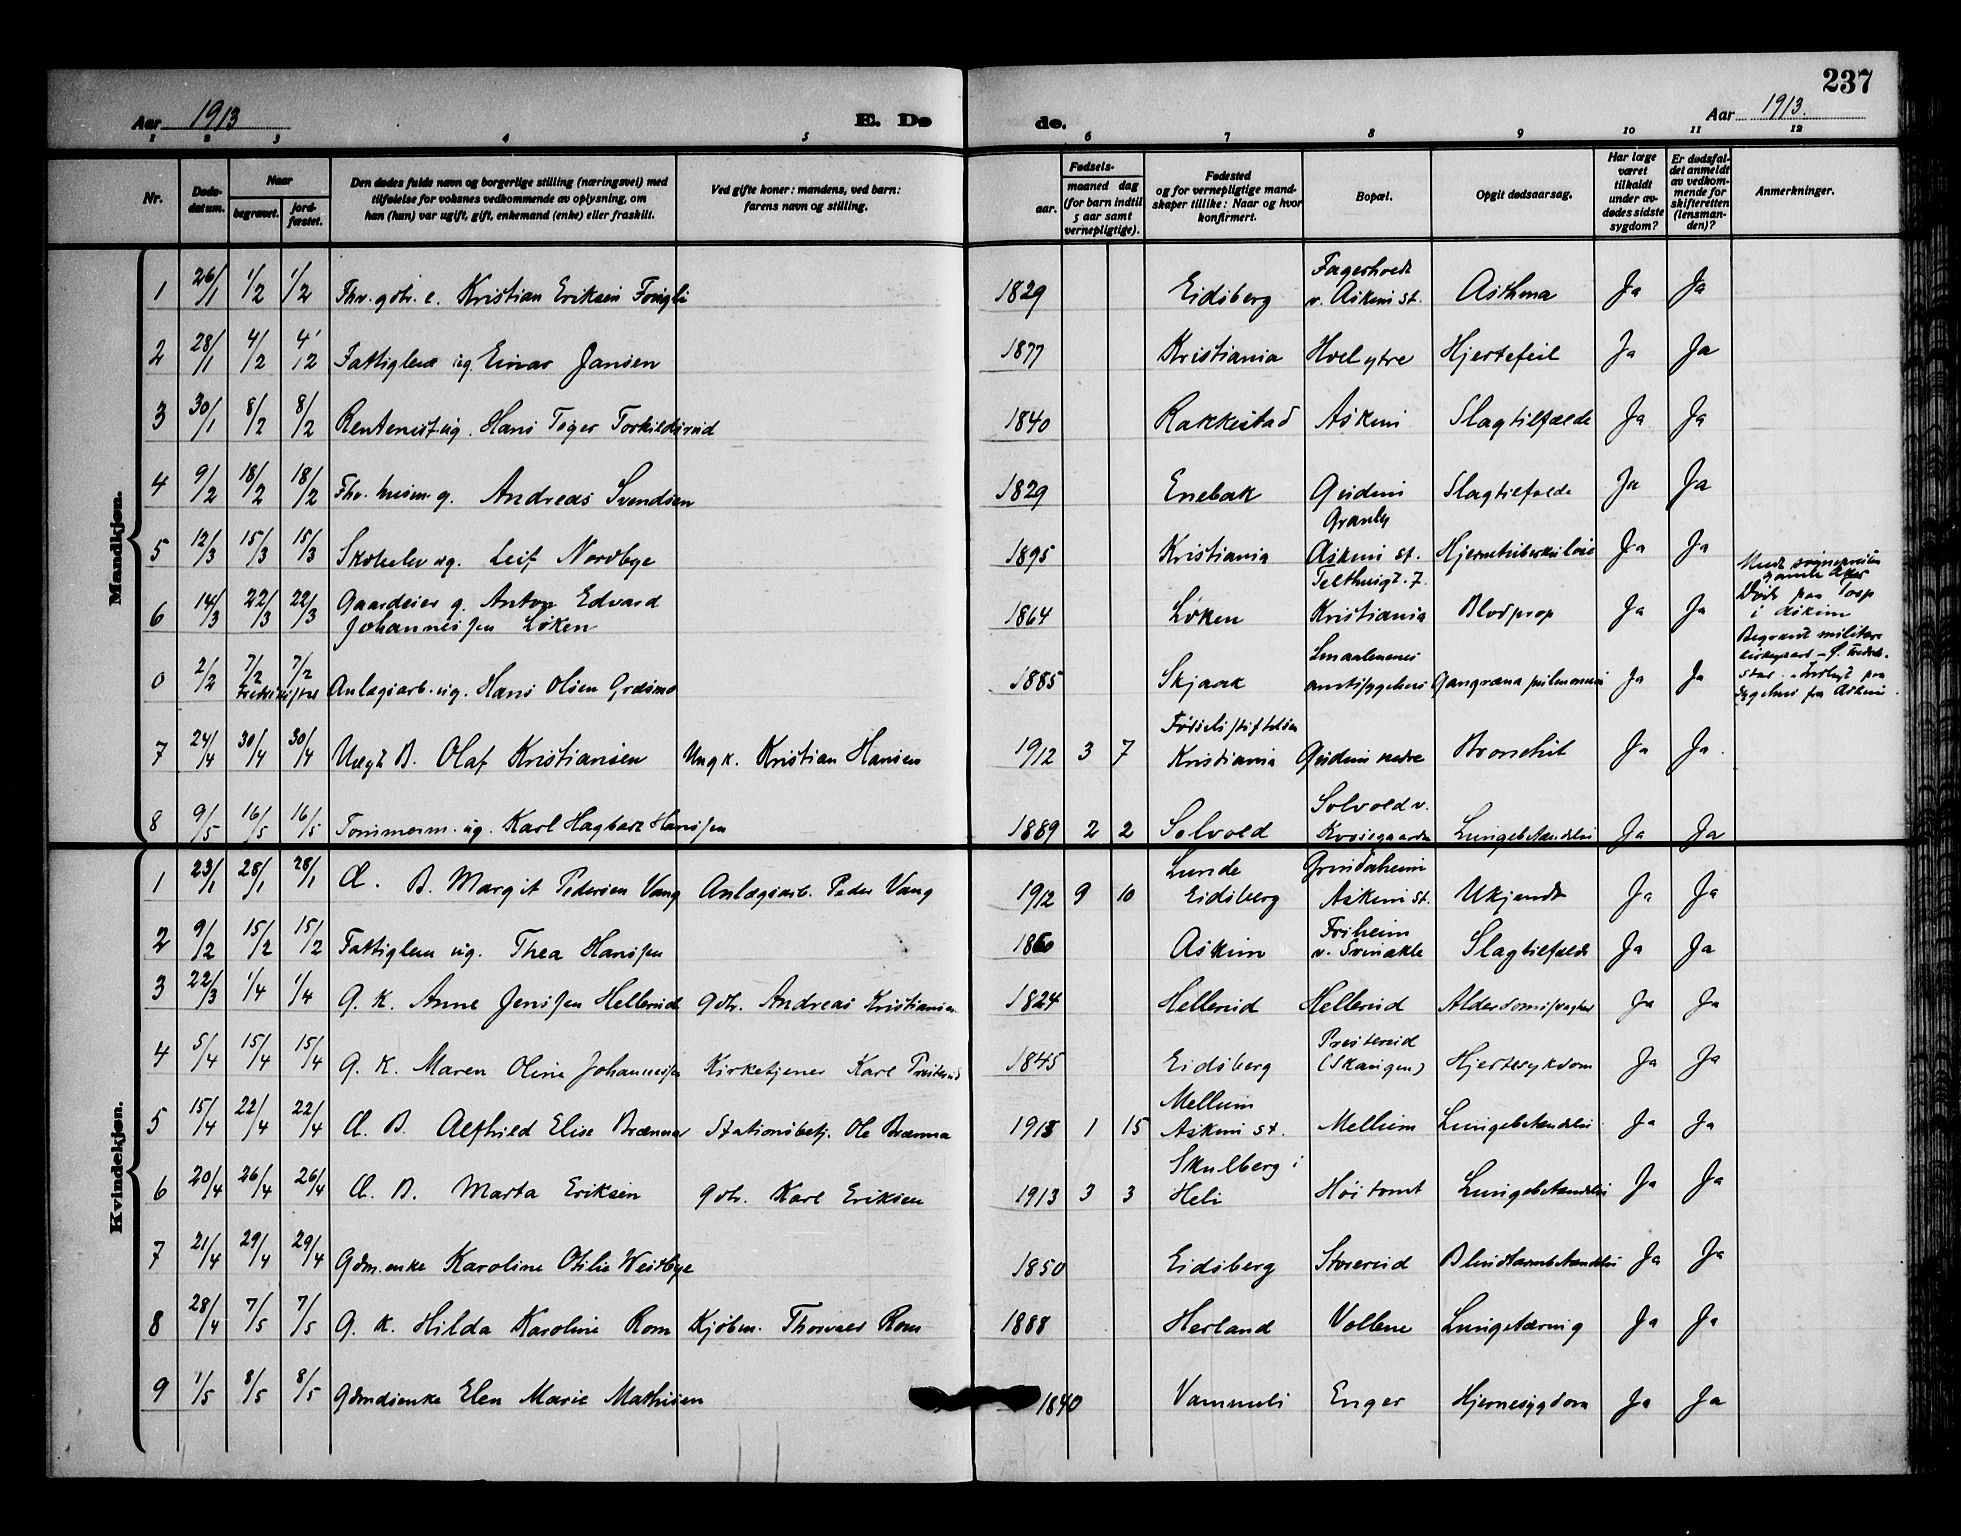 237
Aar 1913
E. Dø
de.
Aar 1913.
1 2 3 4 5 6 7 8 9 10 11 12
Nr.
Døds-
datum.
Naar
begravet.
jord-
fæstet.
Den dødes fulde navn og borgerlige stilling (næringsvei) med
tilføielse for voksnes vedkommende av oplysning, om
han (hun) var ugift, gift, enkemand (enke) eller fraskilt.
Ved gifte koner: mandens, ved barn:
farens navn og stilling.
Fødsels-
aar.
maaned dag
(for barn indtil
5 aar samt
vernepligtige).
Fødested
og for vernepligtige mand-
skaper tillike: Naar og hvor
konfirmert.
Bopæl.
Opgit dødsaarsag.
Har læge
været
tilkaldt
under av-
dødes sidste
sygdom?
Er dødsfal-
det anmeldt
av vedkom-
mende for
skifteretten
(lensman-
den)?
Anmerkninger.
Mandkjøn.
1 26/1 1/2 1/2 Fhv. gbr. e. Kristian Eriksen 1829 Eidsberg v. Askim st. Asthma Ja Ja
2 28/1 4/2 4/2 Fattiglem ug. Einar Jansen 1877 Kristiania Hvel ytre Hjertefeil Ja Ja
3 30/1 8/2 8/2 Rentenist ug. Hans Teger Torkildsrud 1840 Rakkestad Askim Slagtilfælde Ja Ja
4 9/2 18/2 18/2 Fhv. husm. g. Andreas Svendsen 1829 Enebak Gudim Slagtilfælde Ja Ja
5 12/3 15/3 15/3 Skoleelev ug. Leif Nordbye 1895 Kristiania Granly Askim st. Hjernetuberkulose Ja Ja
6 14/3 22/3 22/3 Gaardeier g. Anton Edvard
Johannessen Løken 1864 Løken Telthusgt. 7. Kristiania Blodprop Ja Ja
i Askim
0 2/2 7/2 7/2 Anlægsarb. ug. Hans Olsen Græsmo 1885 Skjaak Smaalenenes amtssygehus Gangræna pulmonum Ja Ja
Sygehus fra Askim.
7 24/4 30/4 30/4 Uægt B. Olaf Kristiansen Ungk. Kristian Hansen 1912 3 7 Fødselsstiftelsen Kristiania Gudim nedre Bronchit Ja Ja.
8 9/5 16/5 16/5 Tømmerm. ug. Karl Hagbart Hanssen 1889 2 2 Solvold Solvold v. Lungebetændelse Ja Ja
Kvindekjøn.
1 23/1 28/1 28/1 Æ. B. Margit Pedersen Vang Anlægsarb. Peder Vang 1912 9 10 Lunde Eidsberg Grindaheim Askim st. Ukjendt Ja Ja
2 9/2 15/2 15/2 Fattiglem ug. Thea Hanssen 1860 Askim Friheim Slagtilfælde Ja Ja
3 22/3 1/4 1/4 G. K. Anne Jenssen Hellerud Gbr. Andreas Kristiansen 1824 Hellerud Hellerud Alderdomssvaghet Ja Ja
4 5/4 15/4 15/4 G. K. Maren Oline Johannessen Kirketjener Karl Presterud 1845 Eidsberg Presterud (Skaugen) Hjertesykdom Ja Ja
5 15/4 22/4 22/4 Æ. B. Alfhild Elise Brænna Stationsbetj. Ole Brænna 1913 1 15 Mellum Askim st. Mellum Lungebetændelse Ja Ja
6 20/4 26/4 26/4 Æ. B. Marta Eriksen Gbr. Karl Eriksen 1913 3 3 Skulberg i Heli Høitomt Lungebetændelse Ja Ja
7 21/4 29/4 29/4 Gdm.enke Karoline Otilie Westbye 1850 Eidsberg Blindtarmbetændelse Ja Ja
8 28/4 7/5 7/5 G. K. Hilda Karoline Rom Kjøbm. Thorvald Rom 1888 Herland Vollene Lungetæring Ja Ja
9 1/5 8/5 8/5 Gdmdsenke Elen Marie Mathisen 1840 Vammeli Enger Hjernesygdom Ja Ja